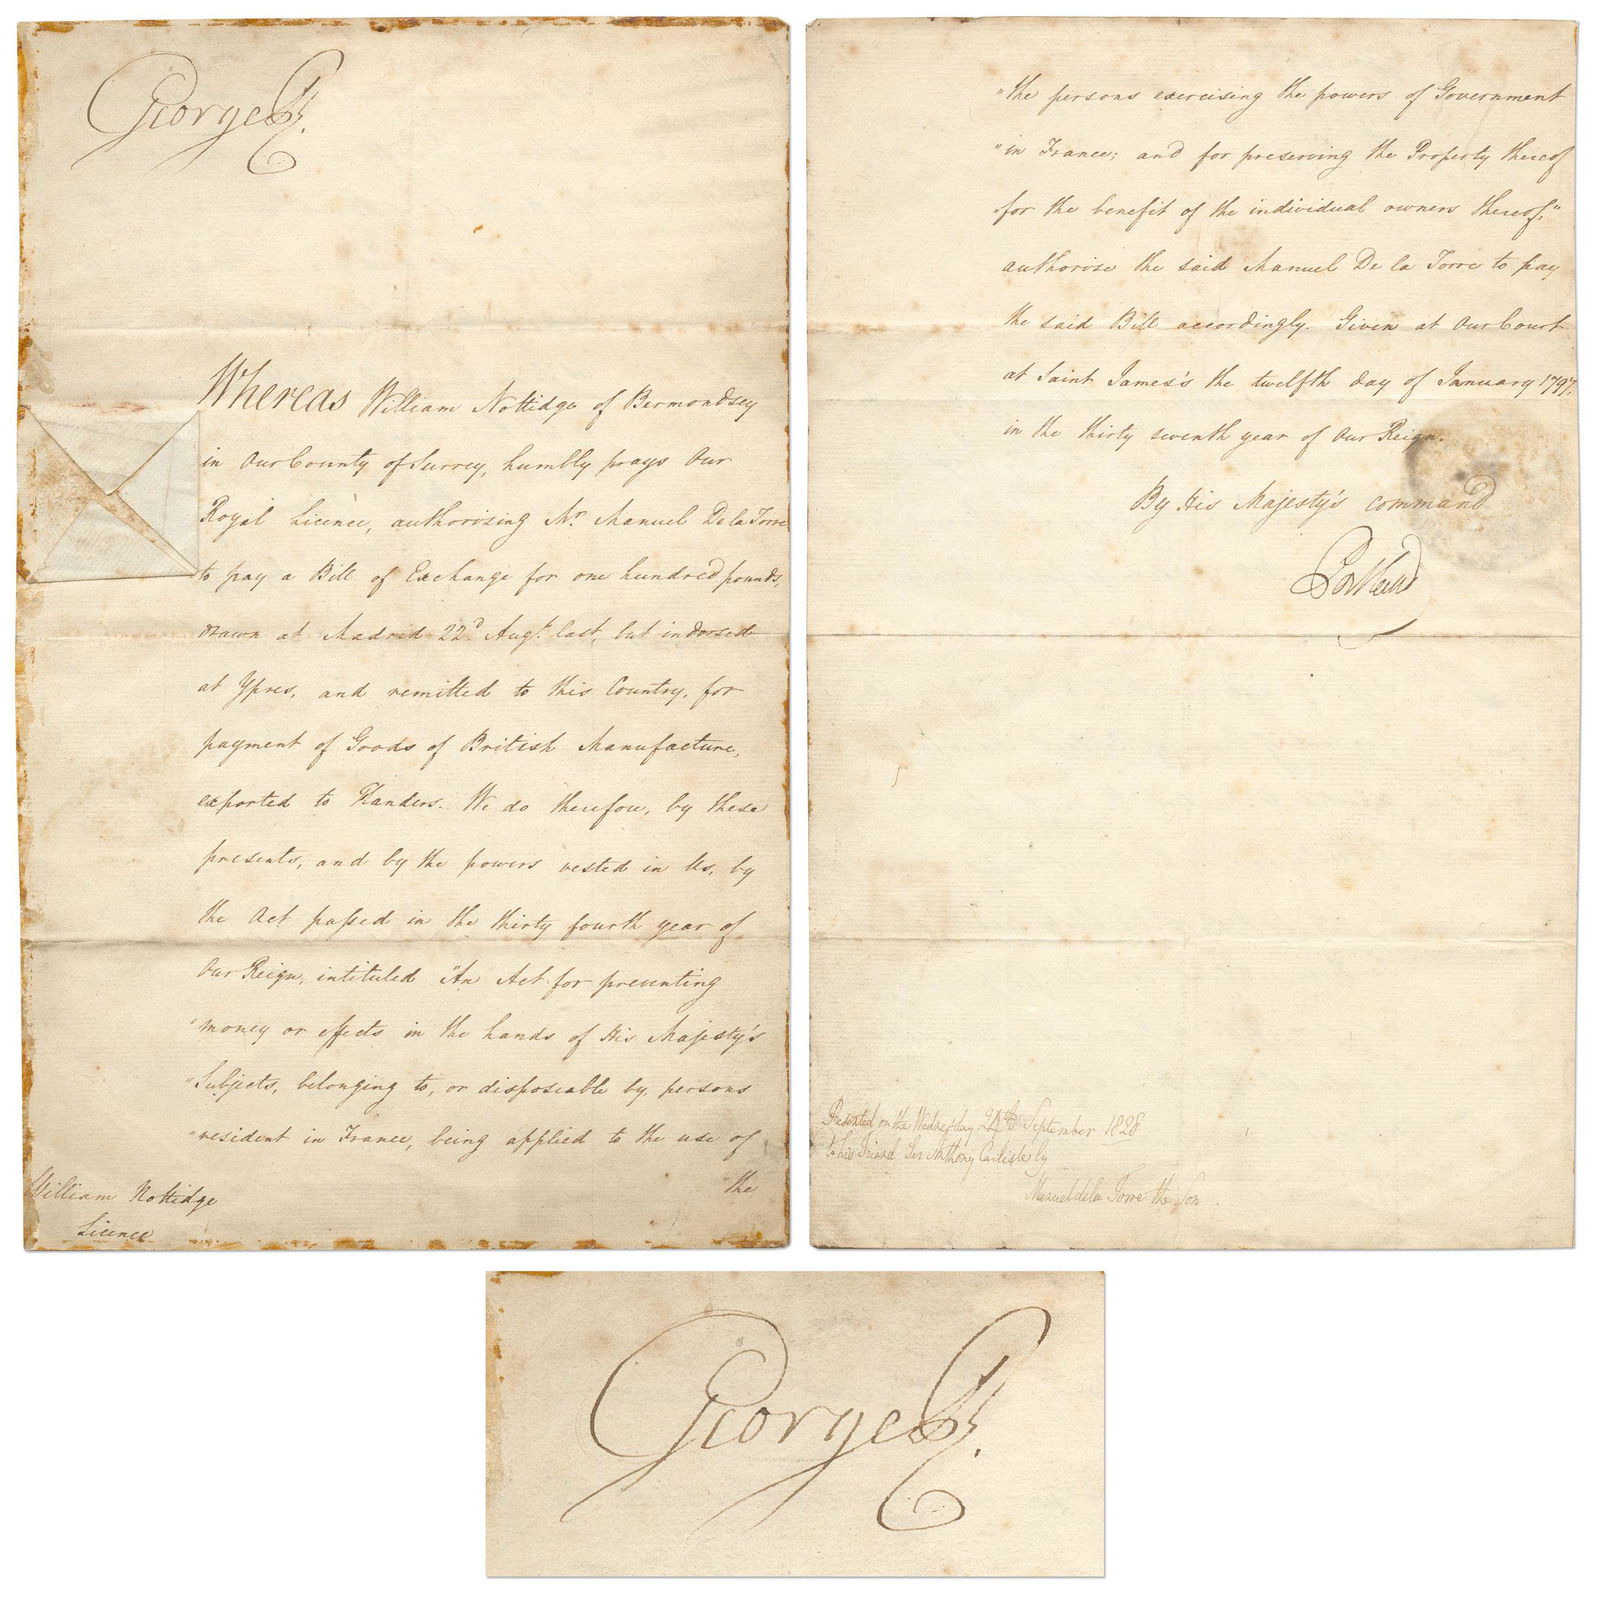 George R.
Whereas William Nottidge of Bermondsey
in Our County of Surrey, humbly prays Our
Royal Licence, authorising Mr. Manuel De la Torre
to pay a Bill of Exchange for one hundred pounds,
drawn at Madrid 22d. Augt. last, but indorsed
at Ypres, and remitted to this Country, for
payment of Goods of British Manufacture,
exported to Flanders. We do therefore, by these
presents, and by the powers vested in Us, by
the Act passed in the thirty fourth year of
Our Reign, intituled "An Act for preventing
"money or effects in the hands of His Majesty's
"Subjects, belonging to, or disposeable by, persons
"resident in France, being applied to the use of
"the
William Nottidge
Licence
"the persons exercising the powers of Government
"in France; and for preserving the Property thereof
"for the benefit of the individual owners thereof,"
authorise the said Manuel De la Torre to pay
the said Bill accordingly. Given at Our Court
at Saint James's the twelfth day of January 1797,
in the thirty seventh year of Our Reign.
By His Majesty's command
Portland
Presented on the Wednesday 24th September 1828
to his Friend Sir Anthony Carlisle by
Manuel de la Torre the Son.
George R.